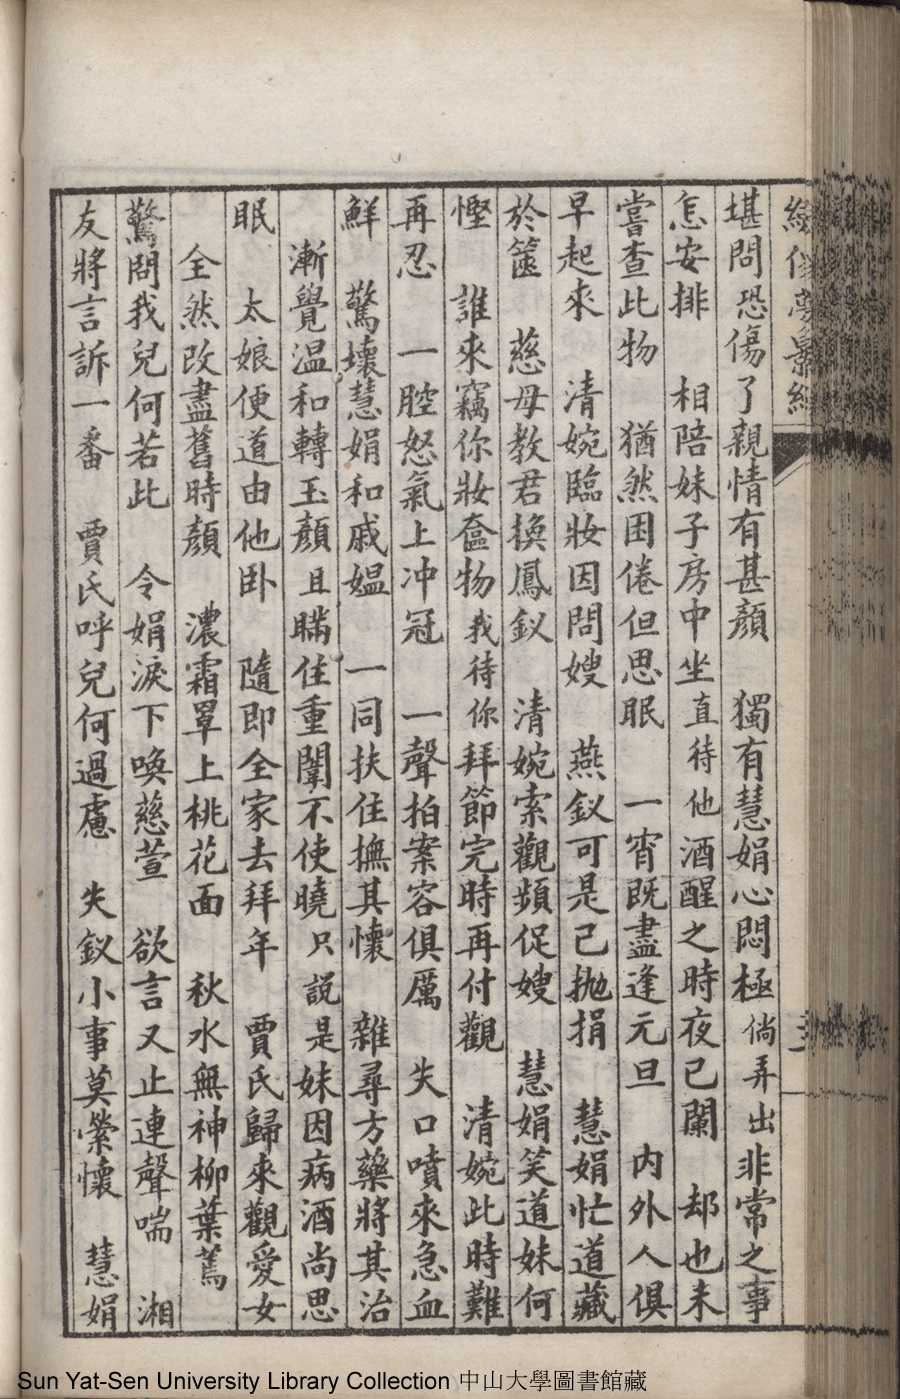 堪問恐傷了親情有甚顏　獨有慧娟心悶極倘弄出非常之事
怎安排　相陪妹子房中坐直待他酒醒之時夜已闌　却也未
嘗查此物　猶然困倦但思眠　一宵既盡逢元旦　內外人俱
早起來　清婉臨妝因問嫂　燕釵可是已拋捐　慧娟忙道藏
於篋　慈母教君換鳳釵　清婉索觀頻促嫂　慧娟笑道妹何
慳　誰來竊你妝奩物我待你拜節完時再付觀　清婉此時難
再忍　一腔怒氣上冲冠　一聲拍案容俱厲　失口噴來急血
鮮　驚壞慧娟和戚媼　一同扶住撫其懷　雜尋方藥將其治
漸覺温和轉玉顏且瞞住重闈不使曉只說是妹因病酒尚思
眠　太娘便道由他卧　隨即全家去拜年　賈氏歸來觀愛女
全然改盡舊時顏　濃霜罩上桃花面　秋水無神柳葉蔫
驚問我兒何若此　令娟淚下喚慈萱　欲言又止連聲喘　湘
友將言訴一番　賈氏呼兒何過慮　失釵小事莫縈懷　慧娟
Sun Yat-Sen University Library Collection 中山大學圖書館藏